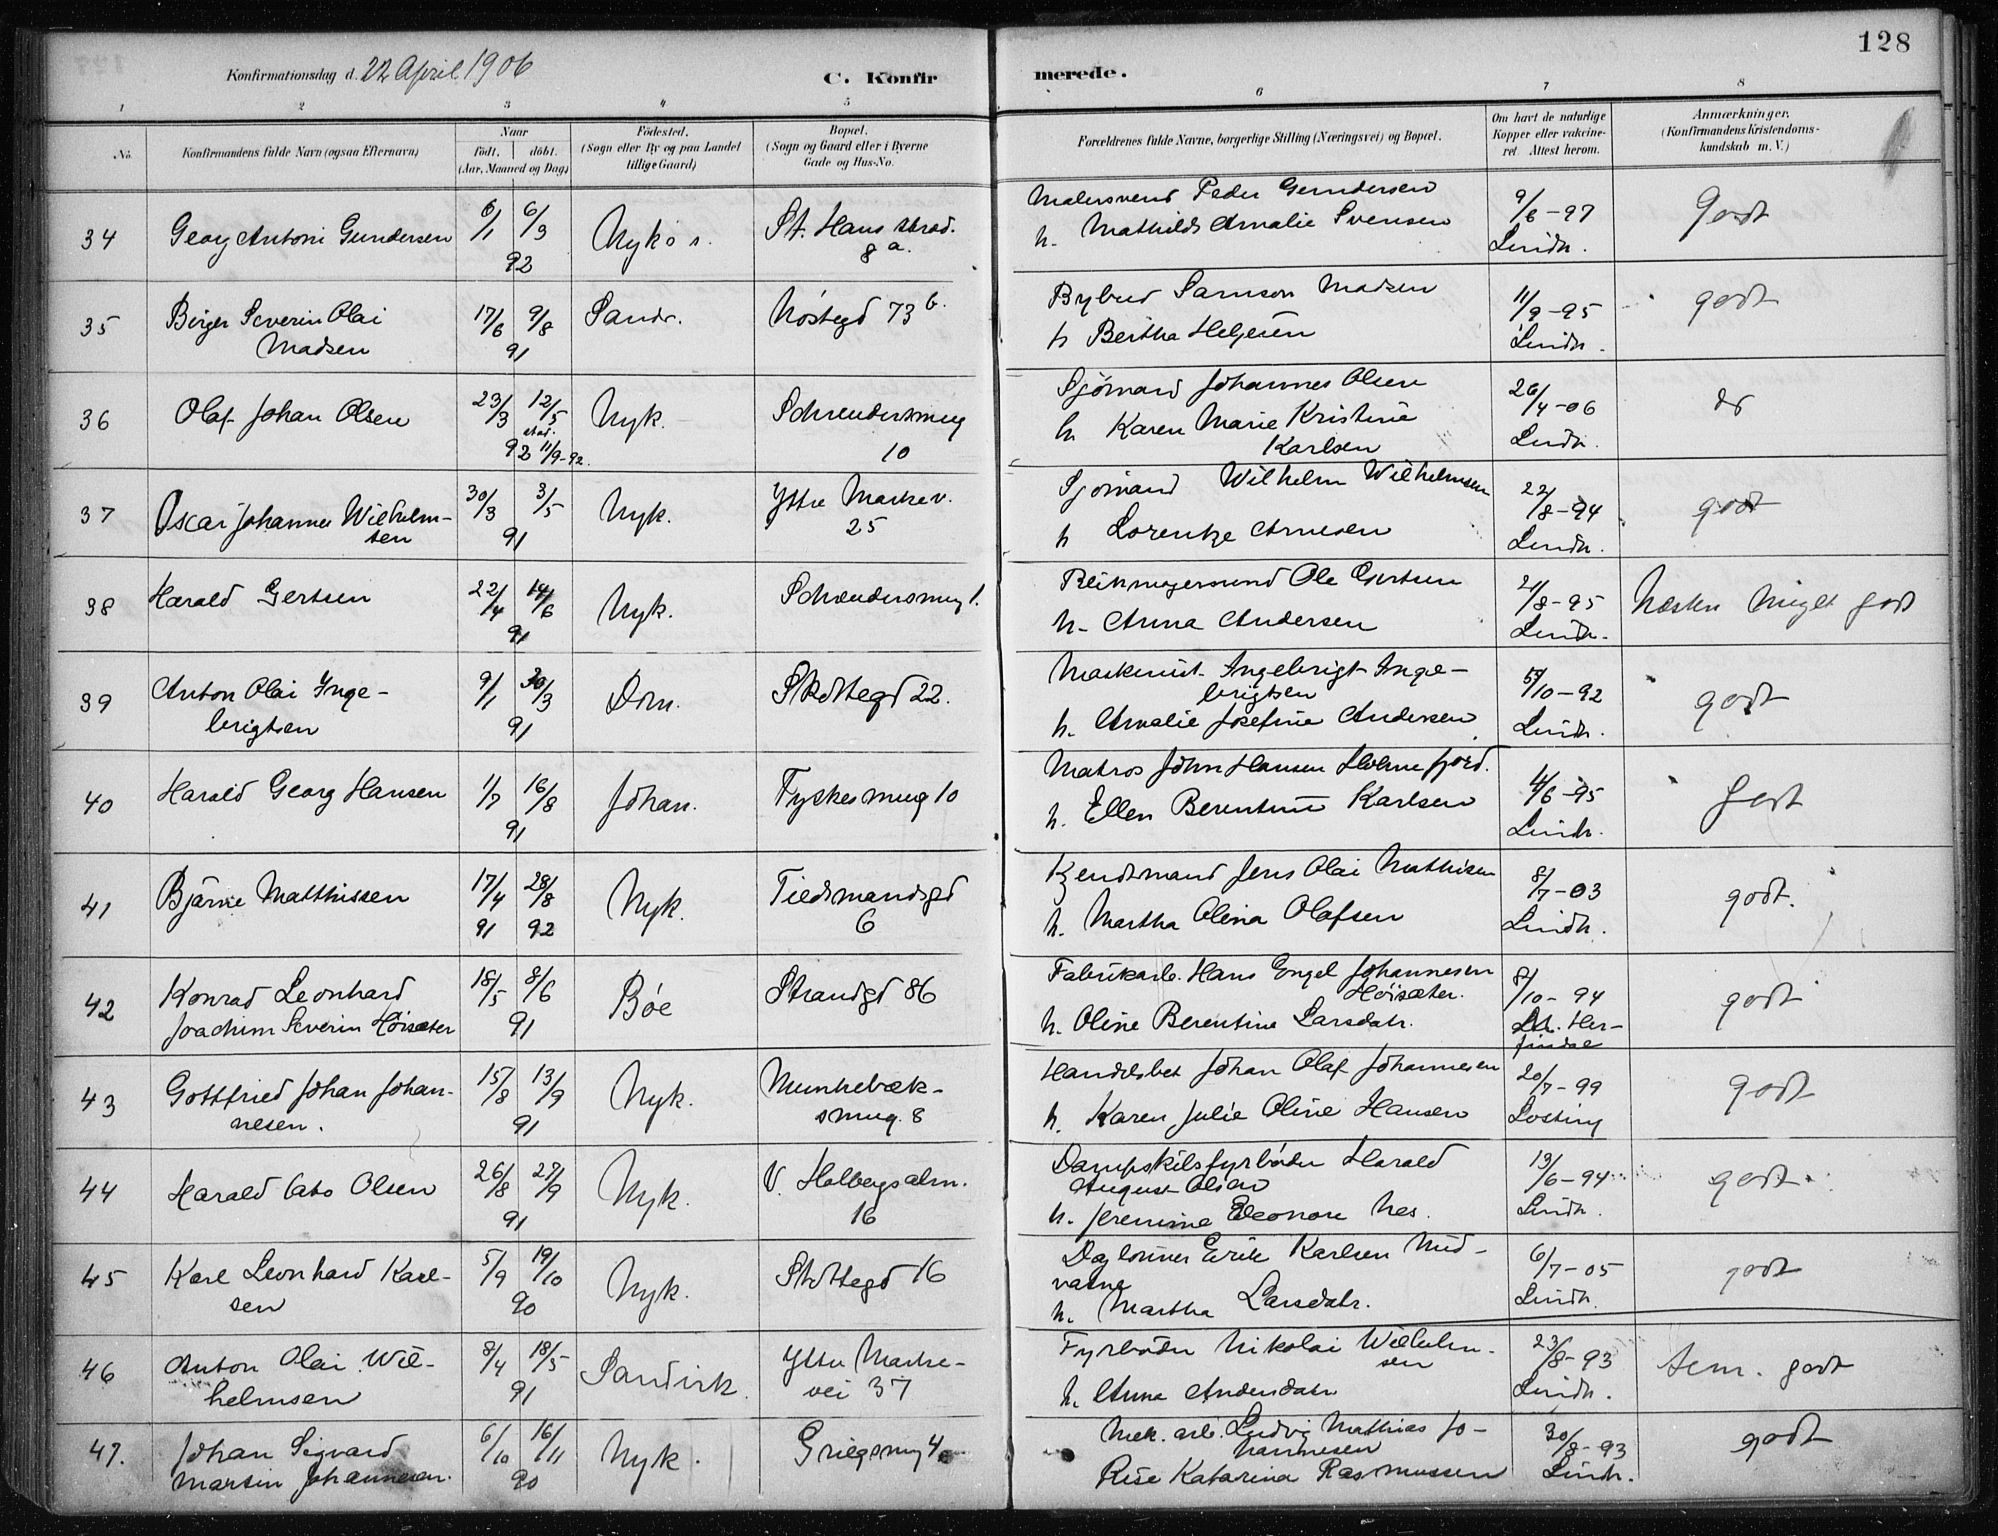 128
Konfirmationsdag d. 22 April 1906
C. Konfirmerede.
1 2 3 4 5 6 7 8
No.
Konfirmandens fulde Navn (ogsaa Efternavn)
Naar
født, døbt.
(Aar, Maaned og Dag)
Fødested.
(Sogn eller By og paa Landet
tillige Gaard)
Bopæl.
(Sogn og Gaard eller i Byerne
Gade og Hus-No.
Forældrenes fulde Navne, borgerlige Stilling (Næringsvei) og Bopæl.
Om havt de naturlige
Kopper eller vakcine-
ret Attest herom.
Anmærkninger.
(Konfirmandens Kristendoms-
kundskab m. V.)
34 Georg Antoni Gundersen 6/1 6/3 92 Nyk. St. Hans stræd. 8 a.
Malersvend Peder Gundersen
h. Mathilde Amalie Svensen
9/6-97 Lindh. Godt
35 Birger Severin Olai
Madsen 17/6 9/8 91 Sandv. Nøstegd 73 b.
Bybud Samson Madsen
h Bertha Helgesen
11/9-95 Lindh. godt
36 Olaf Johan Olsen 23/3 12/5 stad. 92 11/9-92. Nyk. Schrøndersmug 10
Sjømand Johannes Olsen
h. Karen Marie Kristine
Karlsen
26/4-06 Lindh. do
37 Oscar Johannes Wilhelm-
sen 30/3 3/5 91 Nyk. Ytre Markev. 25
Sjømand Wilhelm Wilhelmsen
h Lorentze Arnesen
22/8-94 Lindh. godt
38 Harald Gertsen 22/4 14/6 91 Nyk. Schrøndersmug 1.
Ole Gertsen
h. Anna Andersen
21/8-95 Lindh. Næsten Meget godt
39 Anton Olai Inge-
brigtsen 9/1 30/3 91 Dom. Skottegd 22.
Maskinist Ingebrigt Inge-
brigtsen
h. Amalie Josefine Andersen
5/10-92 Lindh. godt
40 Harald Georg Hansen 1/7 16/8 91 Johan. Fyskesmug 10
Matros John Hansen Holmefjord.
h. Ellen Berentine Karlsen
4/6-95 Lindh. Godt
41 Bjarne Matthissen 17/4 91 28/8 92 Nyk. Tiedemandsgd 6
Kjendtmand Jens Olai Mathisen
h. Martha Olina Olafsen
8/7-03 Lindh. godt.
42 Konrad Leonhard
Joachim Severin Høisæter 18/5 8/6 91 Bøe Strandgd 86
Fabrikarb. Hans Engel Johannesen
Høisæter.
h. Oline Berentine Larsdatr.
8/10-94 Her-
findal godt
43 Gottfried Johan Johan-
nesen. 15/8 13/9 91 Nyk. Munkebæk-
smug. 8
Handelsbet Johan Olaf Johannesen
h. Karen Julie Oline Hansen
20/7-99 Losting godt
44 Harald Cato Olsen 26/8 27/9 91 Nyk. V. Holbergsalm. 16
Dampskibsfyrbøder Harald
August Olsen
h. Jensine Eleonore Nes.
13/6-94 Lindh. godt.
45 Karl Leonhard Karl-
sen 5/9 19/10 90 Nyk. Skottegd 16
Daglønner Erik Karlsen Mid-
vatne
h. Martha Larsdatr.
6/7-05 Lindh. godt
46 Anton Olai Wil-
helmsen 8/4 18/5 91 Sandvik. Ytre Marke-
vei 37
Fyrbøder Nikolai Wilhelm-
sen
h. Anna Andersdatr
23/8-93 Lindh. tem. godt
47. Johan Sigvard
Martin Johannesen. 6/10 16/11 90 Nyk. Griegsmug 4
Mek. arb. Ludvig Mathias Jo-
hannesen
Elise Katarina Rasmussen
30/8-93 Lindh. godt